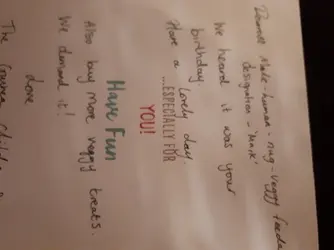 Dearest Male-human-nug-veggy
designation - 'Mark'
We heard it was your
birthday.
Have a lovely day.
...ESPECIALLY FOR
YOU!
Have Fun
Also buy more veggy treats.
We demand it!
Love
The